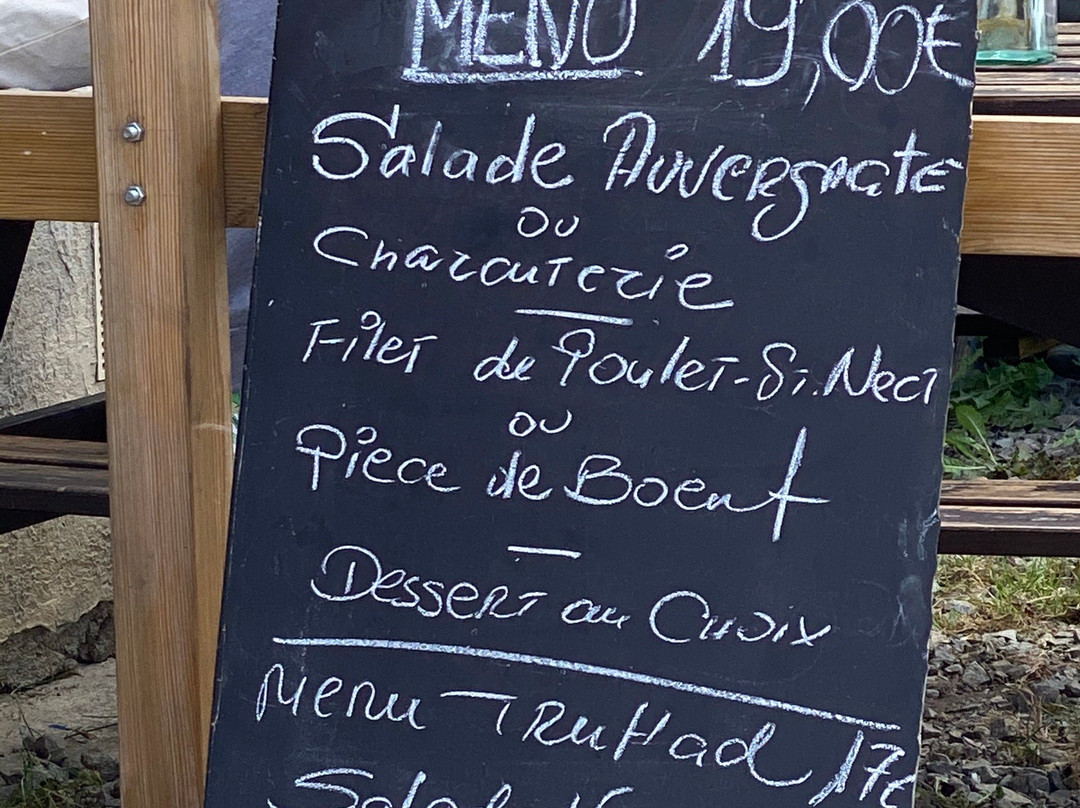 MENU 19,00€
Salade Auvergnate
ou
Charcuterie
Filet de Poulet-St.Nect
ou
Piece de Boeuf
Dessert au Choix
Menu Truffad 17€